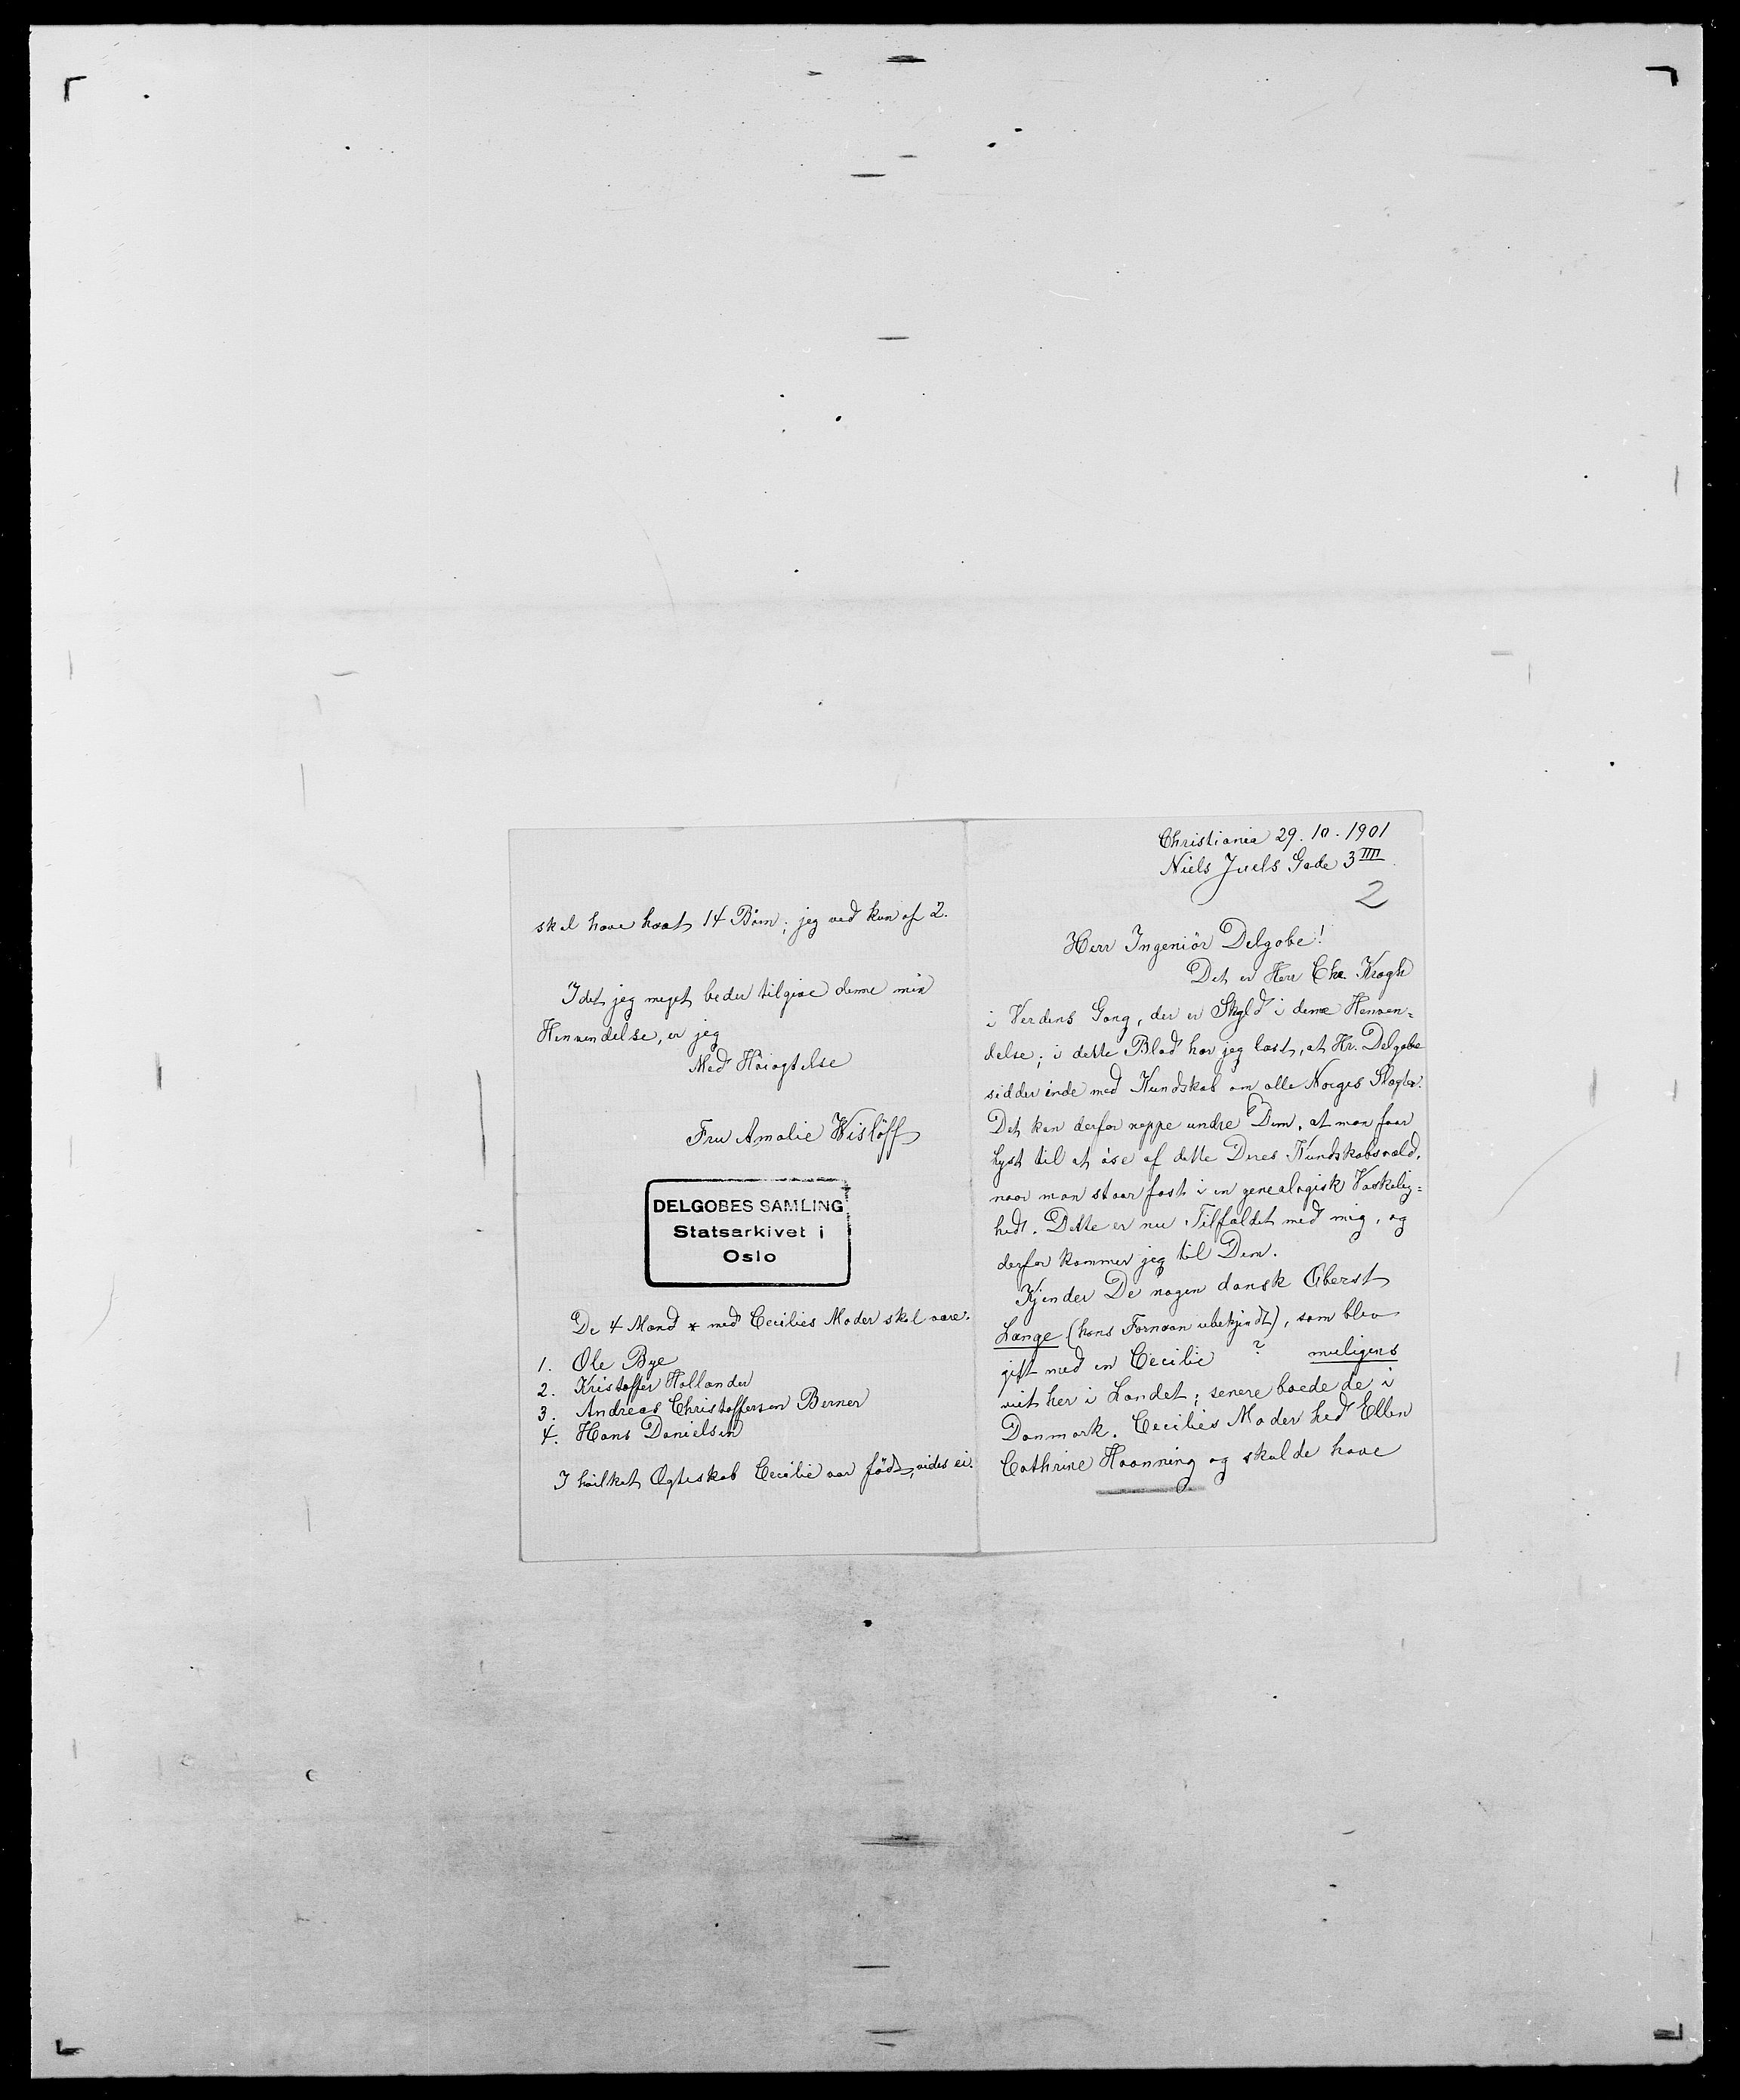 Christiania 29. 10. 1901
Niels Juels Gade 3 IIII
2
Herr Ingeniör Delgobe!
Det er Herr Chr. Krogh
i Verdens Gang, der er Skyld i denne Henven=
delse; i dette Blad har jeg læst, at Hr. Delgobe
sidder inde med Kundskab om alle Norges Slægter.
Det kan derfor neppe undre Dem, at man faar
Lyst til at öse af dette Deres Kundskabsvæld,
naar man staar fast i en genealogisk Vaskelig=
hed. Dette er nu Tilfældet med mig, og
derfor kommer jeg til Dem.
Kjender De nogen dansk Oberst
Lange (hans Fornavn ubekjendt), som blev
gift med en Cecilie ? muligens
viet her i Landet; senere boede de i
Danmark. Cecilies Moder hed Ellen
Cathrine Haanning og skulde have
skal have havt 14 Börn; jeg ved kun af 2.
Idet jeg meget beder tilgive denne min
Henvendelse, er jeg
Med Höiagtelse
Fru Amalie Wislöff
DELGOBES SAMLING
Statsarkivet i
Oslo
De 4 Mænd * med Cecilies Moder skal være.
1. Ole Bye
2. Kristoffer Hollander
3. Andreas Christoffersen Berner
4. Hans Danielsen
I hvilket Ægteskab Cecilie var född, vides ei.